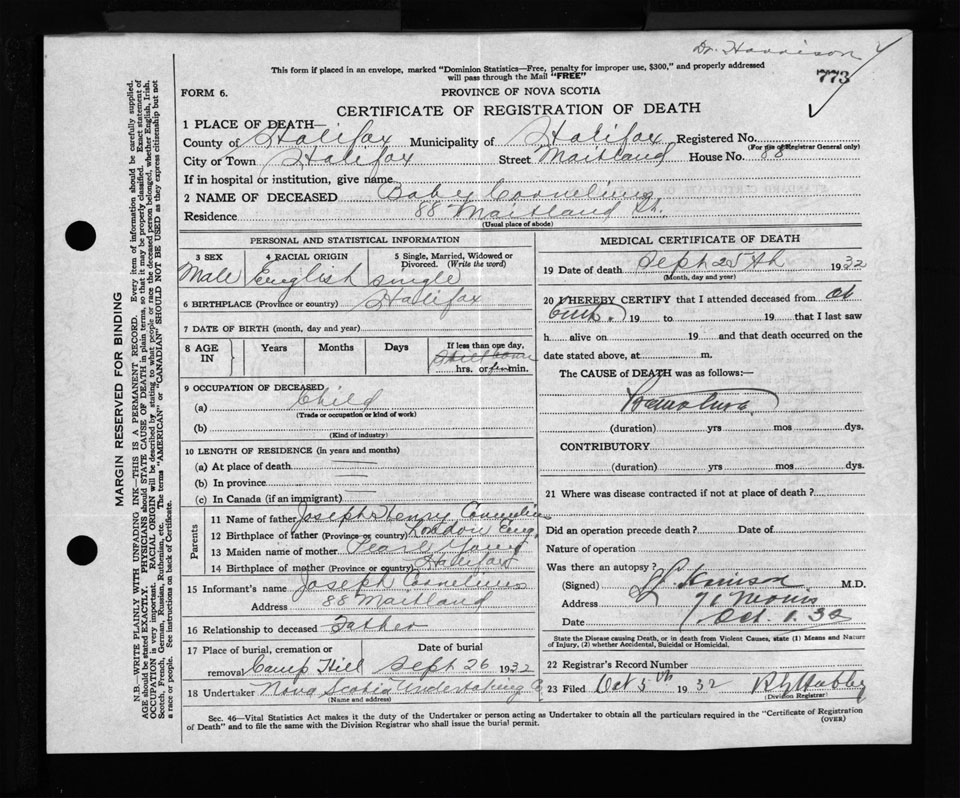 Dr. Harrison 4
This form if placed in an envelope, marked "Dominion Statistics—Free, penalty for improper use, $300," and properly addressed
will pass through the Mail "FREE"
773
FORM 6.
PROVINCE OF NOVA SCOTIA
CERTIFICATE OF REGISTRATION OF DEATH
1 PLACE OF DEATH—
County of Halifax Municipality of Halifax Registered No.
(For use of Registrar General only)
City or Town Halifax Street Maitland House No. 88
If in hospital or institution, give name
2 NAME OF DECEASED Baby Cornelius
Residence 88 Maitland St.
(Usual place of abode)
PERSONAL AND STATISTICAL INFORMATION
3 SEX 4 RACIAL ORIGIN 5 Single, Married, Widowed or Divorced. (Write the word)
Male English single
6 BIRTHPLACE (Province or country) Halifax
7 DATE OF BIRTH (month, day and year)
8 AGE IN Years Months Days If less than one day,
hrs. or min.
9 OCCUPATION OF DECEASED
(a) Child
(Trade or occupation or kind of work)
(b)
(Kind of industry)
10 LENGTH OF RESIDENCE (in years and months)
(a) At place of death
(b) In province
(c) In Canada (if an immigrant)
Parents
11 Name of father Joseph Henry Cornelius
12 Birthplace of father (Province or country) London Eng.
13 Maiden name of mother Pearl Young
14 Birthplace of mother (Province or country) Halifax
15 Informant's name Joseph Cornelius
Address 88 Maitland
16 Relationship to deceased Father
17 Place of burial, cremation or removal Camp Hill Date of burial Sept 26 1932
18 Undertaker Nova Scotia Undertaking Co
(Name and address)
MEDICAL CERTIFICATE OF DEATH
19 Date of death Sept 25th 1932
(Month, day and year)
20 I HEREBY CERTIFY that I attended deceased from at
birth. 19 to 19 that I last saw
h alive on 19 and that death occurred on the
date stated above, at m.
The CAUSE of DEATH was as follows:—
Premature
(duration) yrs mos dys.
CONTRIBUTORY
(duration) yrs mos dys.
21 Where was disease contracted if not at place of death?
Did an operation precede death? Date of
Nature of operation
Was there an autopsy?
(Signed) Harrison M.D.
Address 96 Morris
Date Oct. 1. 32
State the Disease causing Death, or in death from Violent Causes, state (1) Means and Nature
of Injury, (2) whether Accidental, Suicidal or Homicidal.
22 Registrar's Record Number
23 Filed Oct 5th 1932
Division Registrar)
Sec. 46—Vital Statistics Act makes it the duty of the Undertaker or person acting as Undertaker to obtain all the particulars required in the "Certificate of Registration
of Death" and to file the same with the Division Registrar who shall issue the burial permit.
(OVER)
MARGIN RESERVED FOR BINDING
N.B.—WRITE PLAINLY WITH UNFADING INK—THIS IS A PERMANENT RECORD. Every item of information should be carefully supplied.
AGE should be stated EXACTLY. PHYSICIANS should STATE CAUSE OF DEATH in plain terms, so that it may be properly classified. Exact statement of
OCCUPATION is very important. RACIAL ORIGIN will be described by stating to what people or race the deceased person belonged, whether English, Irish,
Scotch, French, German, Russian, Ruthenian, etc. The terms "AMERICAN" or "CANADIAN" SHOULD NOT BE USED as they express citizenship but not
a race or people. See instructions on back of Certificate.